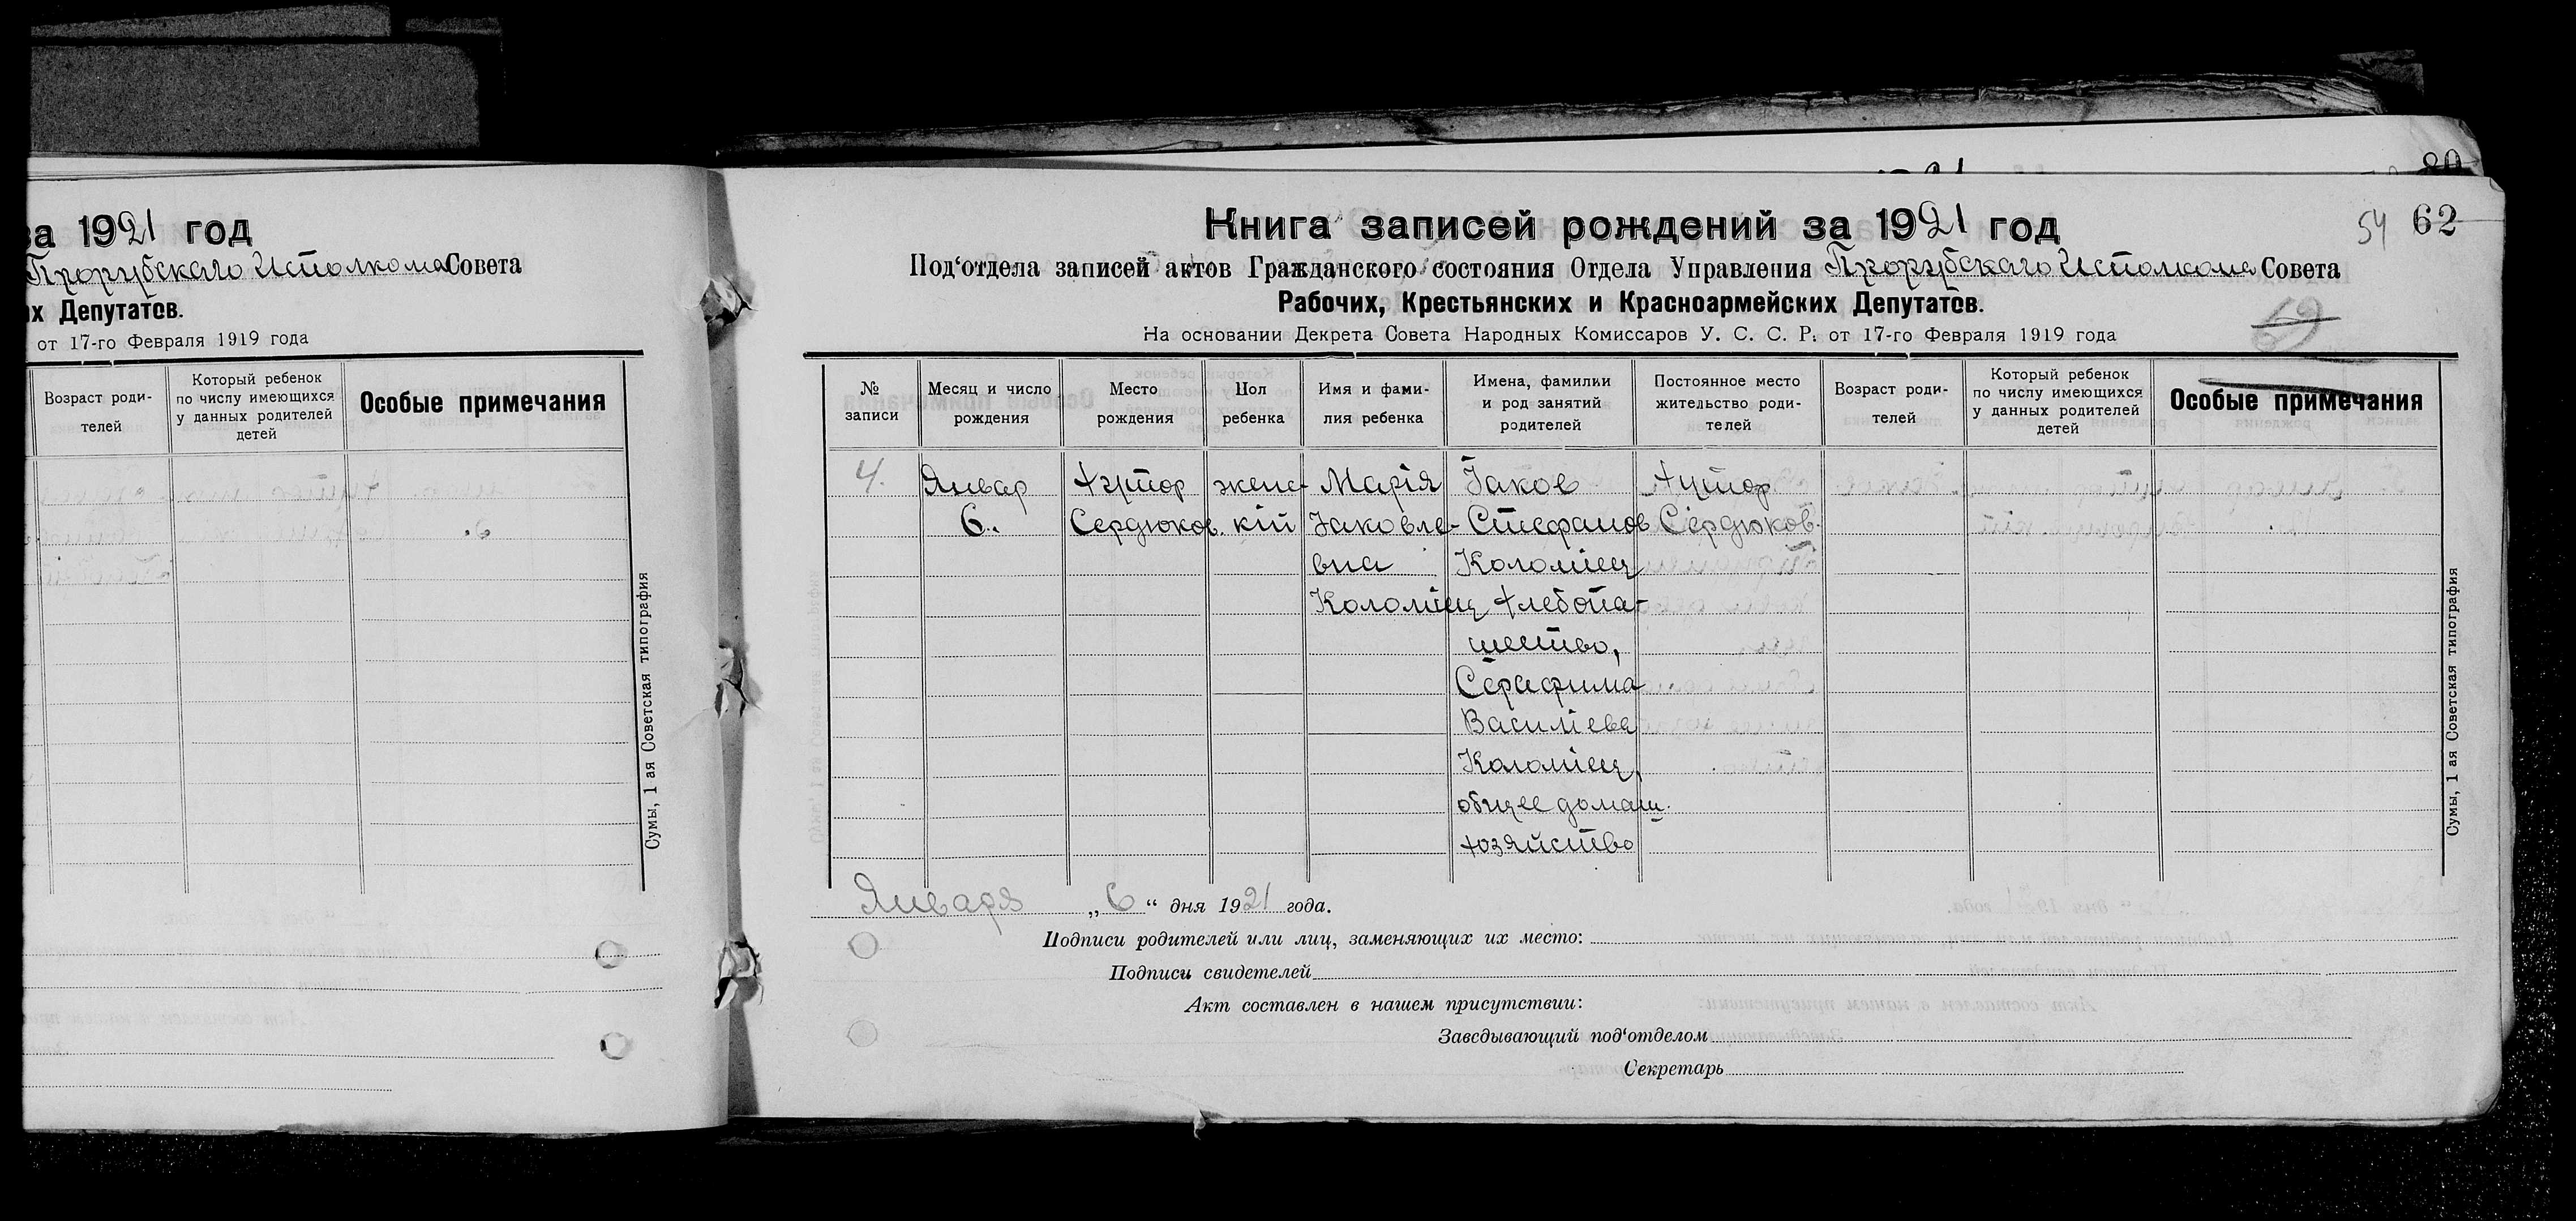 за 1921 год
Прорубскаго Исполкома Совета
их Депутатов.
от 17-го Февраля 1919 года
Возраст роди-
телей
Который ребенок
по числу имеющихся
у данных родителей
детей
Особые примечания
Сумы, 1 ая Советская типография
Книга записей рождений за 1921 год
54 62
Под‘отдела записей актов Гражданского состояния Отдела Управления Прорубскаго Исполкома Совета
Рабочих, Крестьянских и Красноармейских Депутатов.
69
На основании Декрета Совета Народных Комиссаров У. С. С. Р. от 17-го Февраля 1919 года
№
записи
Месяц и число
рождения
Место
рождения
Пол
ребенка
Имя и фами-
лия ребенка
Имена, фамилии
и род занятий
родителей
Постоянное место
жительство роди-
телей
Возраст роди-
телей
Который ребенок
по числу имеющихся
у данных родителей
детей
Особые примечания
4.
Январ
6.
Хутор
Сердюков.
женс-
кій
Марія
Іаковле-
вна
Коломіец
Іаков
Стефанов
Коломіец
хлебопа-
шество,
Серафима
Василіева
Коломіец,
общее домаш.
хозяйство
Хутор
Сердюков.
Января „6“ дня 1921 года.
Подписи родителей или лиц, заменяющих их место:
Подписи свидетелей
Акт составлен в нашем присутствии:
Заведывающий под‘отделом
Секретарь
Сумы, 1 ая Советская типография